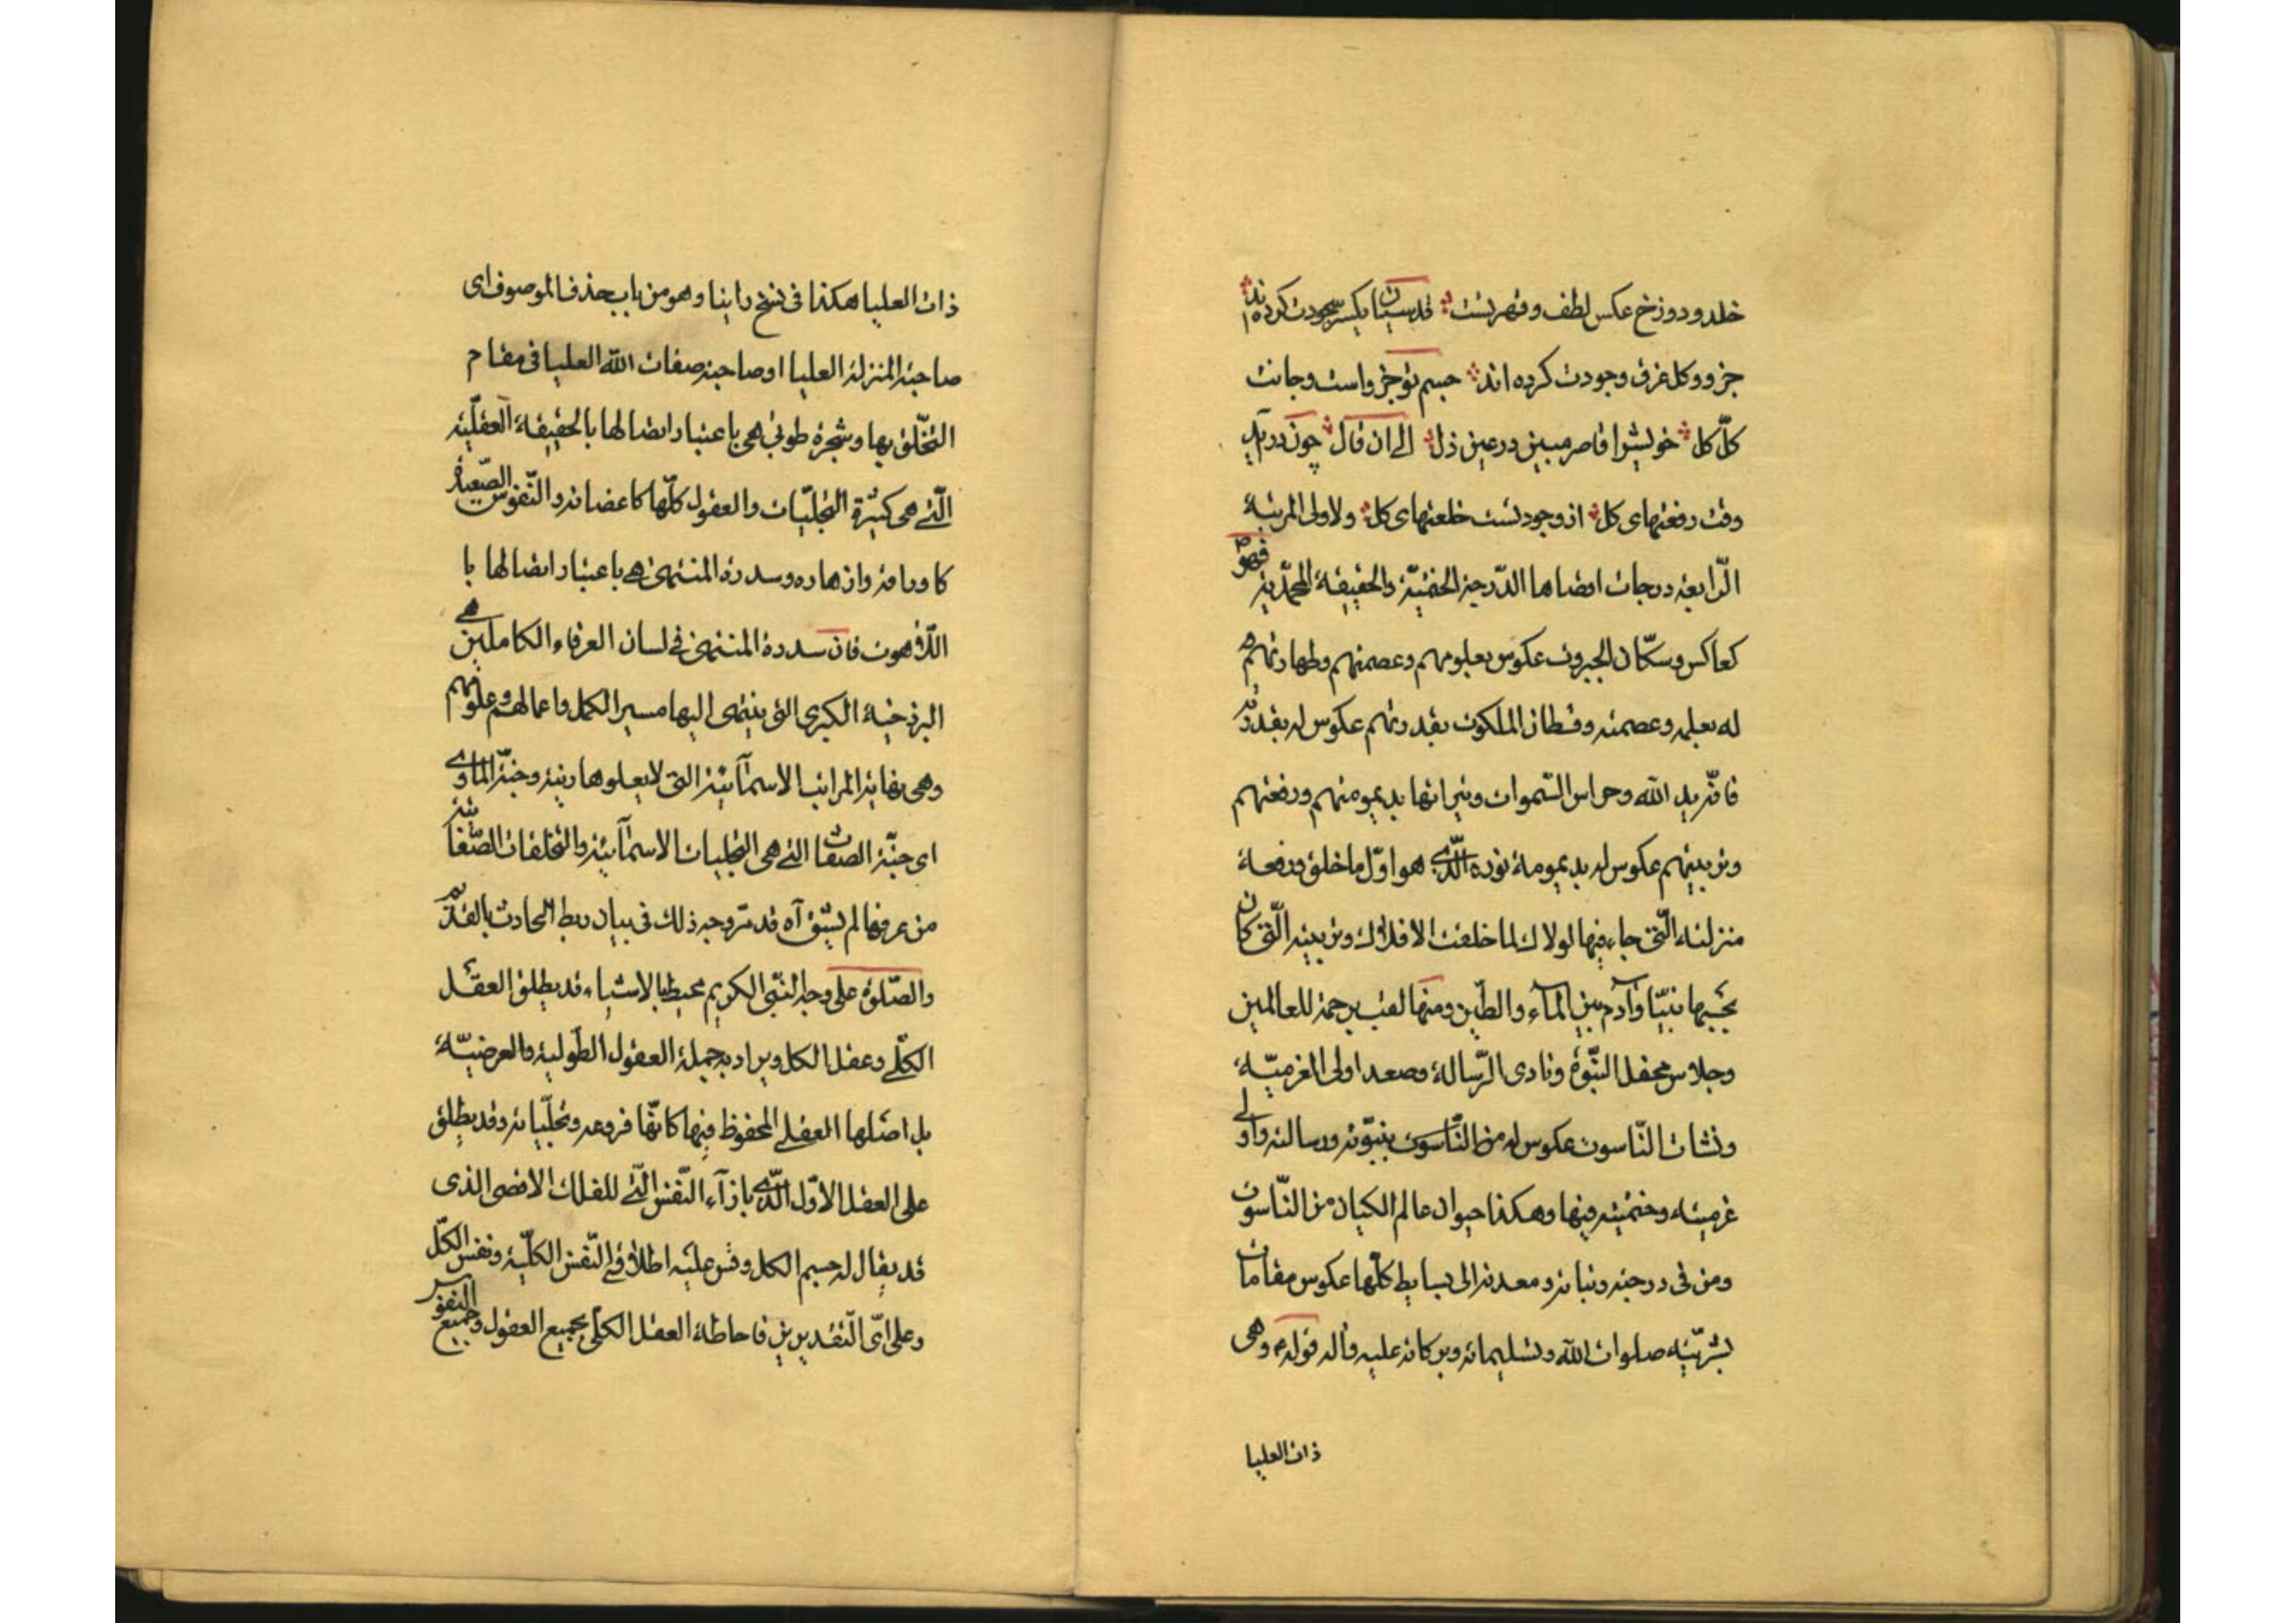 خلد و دوزخ عکس لطف و قهر تست قدسیان یکسر سجودت کرده‌اند
جزو و کل غرق وجودت کرده اند جسم تو جزو است و جانت
کلّ کل خویش را قاصر مبین در عین ذل الی ان قال چون در آید
وقت رفعتهای کل از وجود تست خلعتهای کل ولاولی المرتبة
الرّابعة درجات اقصاها الدّرجة الختمیّة والحقیقة المحمّدیة فهو ص
کعاکس وسکّان الجبروت عکوس بعلومهم وعصمتهم وطهارتهم
له بعلمه وعصمته وقطان الملکوت بقدرتهم عکوس له بقدرته
فانّه ید الله وحراس السّموات ونیرانها بدیمومتهم ورفعتهم
وتربیتهم عکوس له بدیمومة نوره الّذی هو اوّل ما خلق ورفعة
منزلته الّتی جاء فیها لولاك لما خلقت الافلاك وتربیته الّتی کان
بحسبها نبیّا وآدم بین المآء والطّین ومنها لقب برحمة للعالمین
وجلاس محفل النّبوّة ونادی الرّسالة وصعد اولی العزمیّة
ونشات النّاسوت عکوس له من النّاسوت بنبوّته ورسالته واولی
عزمیته وختمیته فیها وهکذا حیوان عالم الکیان من النّاسوت
ومن فی درجته ونباته ومعدنه الی بسایط کلّها عکوس مقامات
بشریّته صلوات الله وتسلیماته وبرکاته علیه وآله قوله ع وهی
ذات العلیا
ذات العلیا هکذا فی نسخ راینا وهو من باب حذف الموصوف ای
صاحبة المنزلة العلیا او صاحبة صفات الله العلیا فی مقام
التخّلق بها وشجرة طوبی هی باعتبار اتصالها بالحقیقة العقلّیة
الّتی هی کثیرة التجلیّات والعقول کلّها کاغصانه والنّفوس الصّعیدة
کاوراقه وازهاره وسدرة المنتهی هی باعتبار اتصالها با
اللّاهوت فان سدرة المنتهی فی لسان العرفاء الکاملین هی
البرزخیة الکبری التی ینتهی الیها مسیر الکمل واعمالهم وعلومهم
وهی نهایة المراتب الاسمآئیّة التی لا یعلوها رتبة وجنّة الماوی
ای جنّة الصفات التی هی التجلیات الاسمآئیّة والتخلقات الصّفاتیّة
من عرفها لم یشق آه قد مرّ وجه ذلك فی بیان ربط الحادث بالقدیم
والصّلوة علی وجه النبّی الکریم محیط بالاشیاء قد یطلق العقل
الکلّی وعقل الکل ویراد به جملة العقول الطّولیة والعرضیّة
بل اصلها العقلی المحفوظ فیها کانّها فروعه وتجلّیاته وقد یطلق
علی العقل الاوّل الّذی بازآء النّفس الّتی للفلك الاقصی الذی
قد یقال له جسم الکل وقس علیه اطلاقی النّفس الکلّیة ونفس الکلّ
وعلی ایّ التّقدیرین فاحاطة العقل الکلّی بجمیع العقول وجمیع النفوس